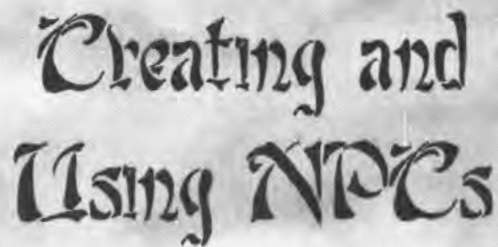 Creating and
Using NPCs